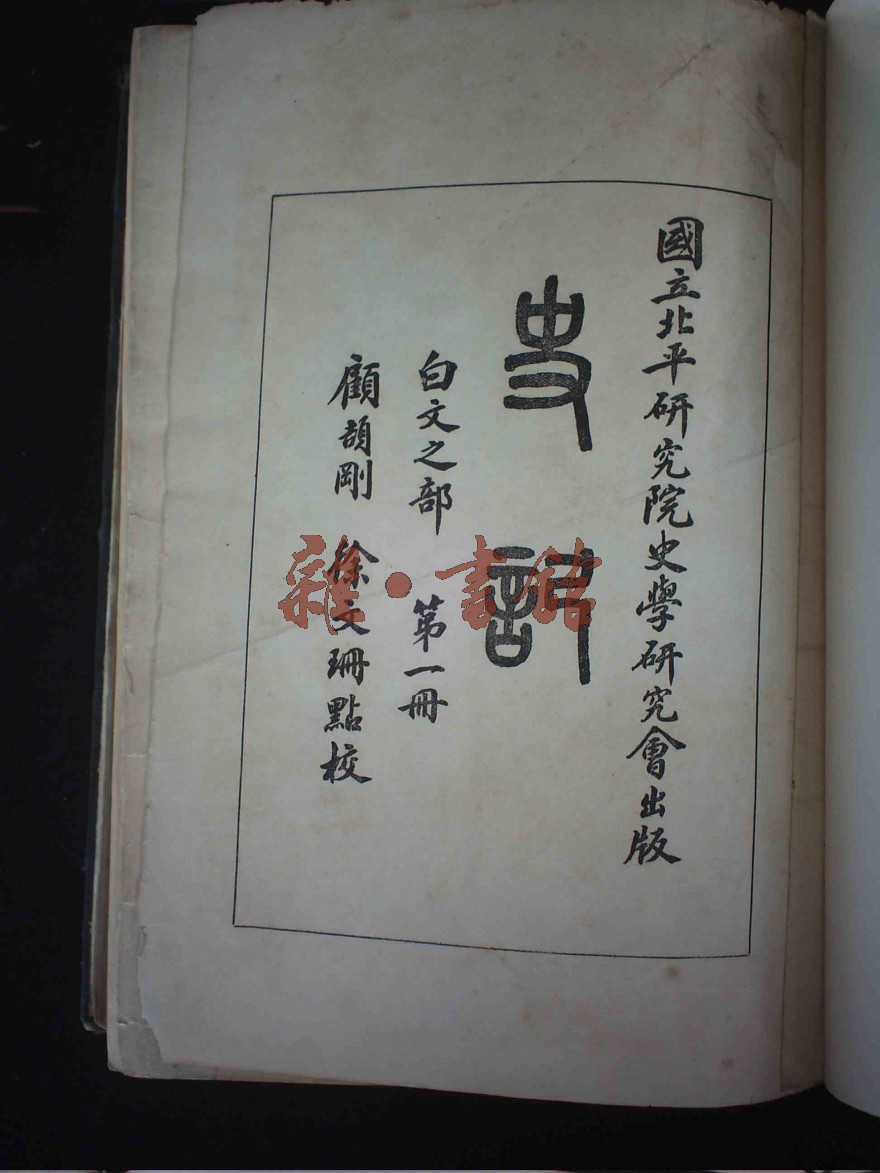 國立北平研究院史學研究會出版
史記
白文之部 第一冊
顧頡剛 徐文珊點校
雜·書館